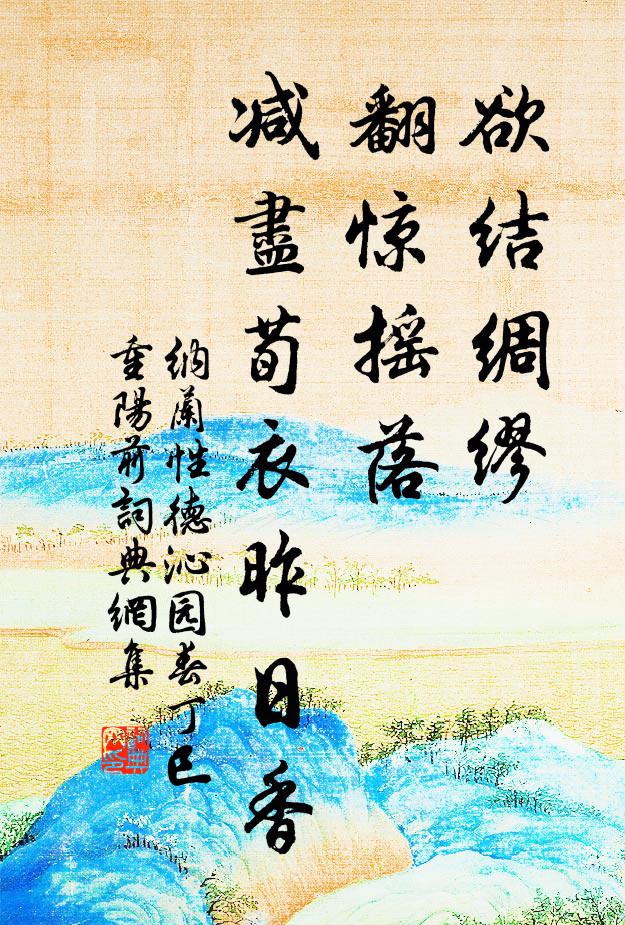 欲结绸缪
翻惊摇落
减盡荀衣昨日香
纳蘭性德沁园春丁巳
重陽前詞典網集